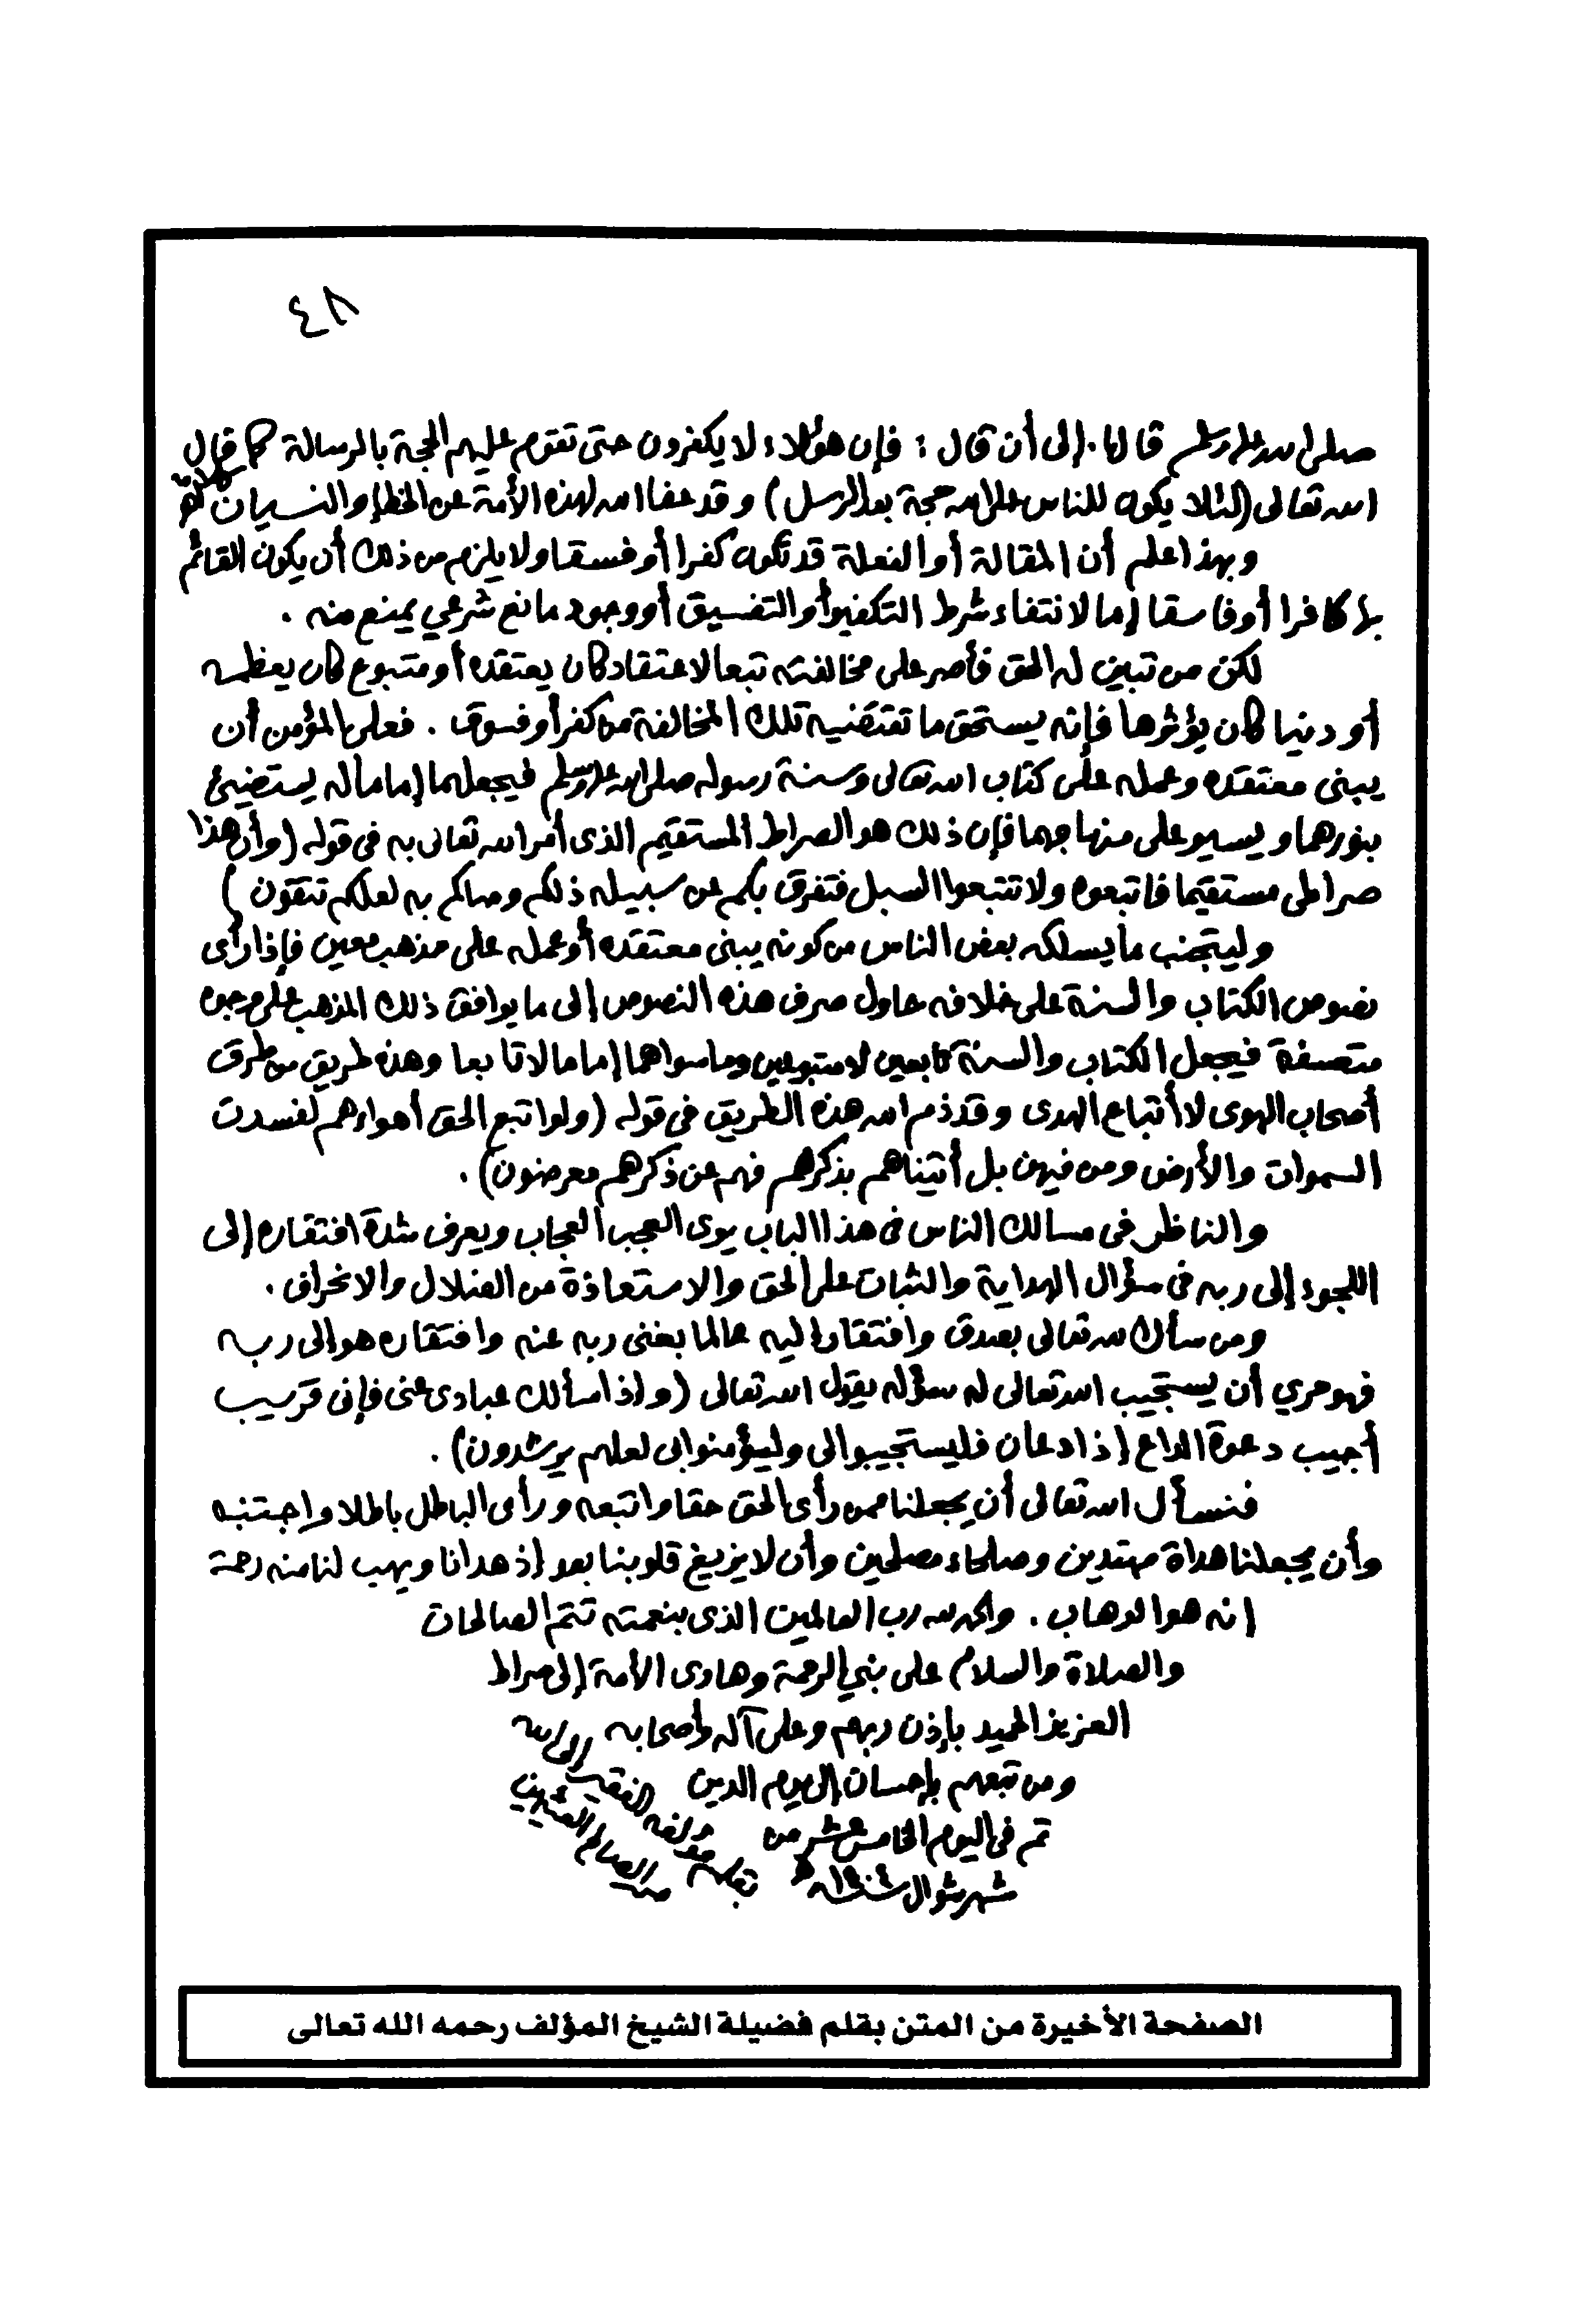 ٤٨
صلى الله عليه وسلم قالها. إلى أن قال : فإن هؤلاء لا يكفرون حتى تقوم عليهم الحجة بالرسالة كما قال
الله تعالى (لئلا يكون للناس على الله حجة بعد الرسل) وقد عفا الله لهذه الأمة عن الخطإ والنسيان
وبهذا علم أن المقالة أو الفعلة قد تكون كفرا أو فسقا ولا يلزم من ذلك أن يكون القائم
بها كافرا أو فاسقا إما لانتفاء شرط التكفير أو التفسيق أو وجود مانع شرعي يمنع منه .
لكن من تبين له الحق فأصر على مخالفته تبعا لاعتقاد كان يعتقده أو متبوع كان يعظمه
أو دنيا كان يؤثرها فإنه يستحق ما تقتضيه تلك المخالفة من كفر أو فسوق . فعلى المؤمن أن
يبنى معتقده وعمله على كتاب الله تعالى وسنة رسوله صلى الله عليه وسلم فيجعلهما إماما له يستضيئ
بنورهما ويسير على منهاجهما فإن ذلك هو الصراط المستقيم الذى أمر الله تعالى به فى قوله (وأن هذا
صراطى مستقيما فاتبعوه ولا تتبعوا السبل فتفرق بكم عن سبيله ذلكم وصاكم به لعلكم تتقون )
وليتجنب ما يسلكه بعض الناس من كونه يبنى معتقده أو عمله على مذهب معين فإذا رأى
نصوص الكتاب والسنة على خلافه حاول صرف هذه النصوص إلى ما يوافق ذلك المذهب على وجوه
متعسفة فيجعل الكتاب والسنة تابعين لا متبوعين وما سواهما إماما لا تابعا وهذه طريق من طرق
أصحاب الهوى لا أتباع الهدى وقد ذم الله هذه الطريق فى قوله (ولو اتبع الحق أهواءهم لفسدت
السموات والأرض ومن فيهن بل أتيناهم بذكرهم فهم عن ذكرهم معرضون) .
والناظر فى مسالك الناس فى هذا الباب يرى العجب العجاب ويعرف شدة افتقاره إلى
اللجوء إلى ربه فى سؤال الهداية والثبات على الحق والاستعاذة من الضلال والانحراف .
ومن سأل الله تعالى بصدق وافتقار إليه عالما بغنى ربه عنه وافتقاره هو إلى ربه
فهو حري أن يستجيب الله تعالى له سؤله يقول الله تعالى (وإذا سألك عبادى عنى فإنى قريب
أجيب دعوة الداع إذا دعان فليستجيبوا لى وليؤمنوا بى لعلهم يرشدون) .
فنسأل الله تعالى أن يجعلنا ممن رأى الحق حقا واتبعه ورأى الباطل باطلا واجتنبه
وأن يجعلنا هداة مهتدين وصلحاء مصلحين وأن لا يزيغ قلوبنا بعد إذ هدانا ويهب لنا منه رحمة
إنه هو الوهاب . والحمد لله رب العالمين الذى بنعمته تتم الصالحات
والصلاة والسلام على نبي الرحمة وهادى الأمة إلى صراط
العزيز الحميد بإذن ربهم وعلى آله وأصحابه
ومن تبعهم بإحسان إلى يوم الدين
تم فى اليوم الخامس عشر من
شهر شوال سنة ١٤٠٤هـ
بقلم مؤلفه الفقير إلى الله
محمد الصالح العثيمين
الصفحة الأخيرة من المتن بقلم فضيلة الشيخ المؤلف رحمه الله تعالى